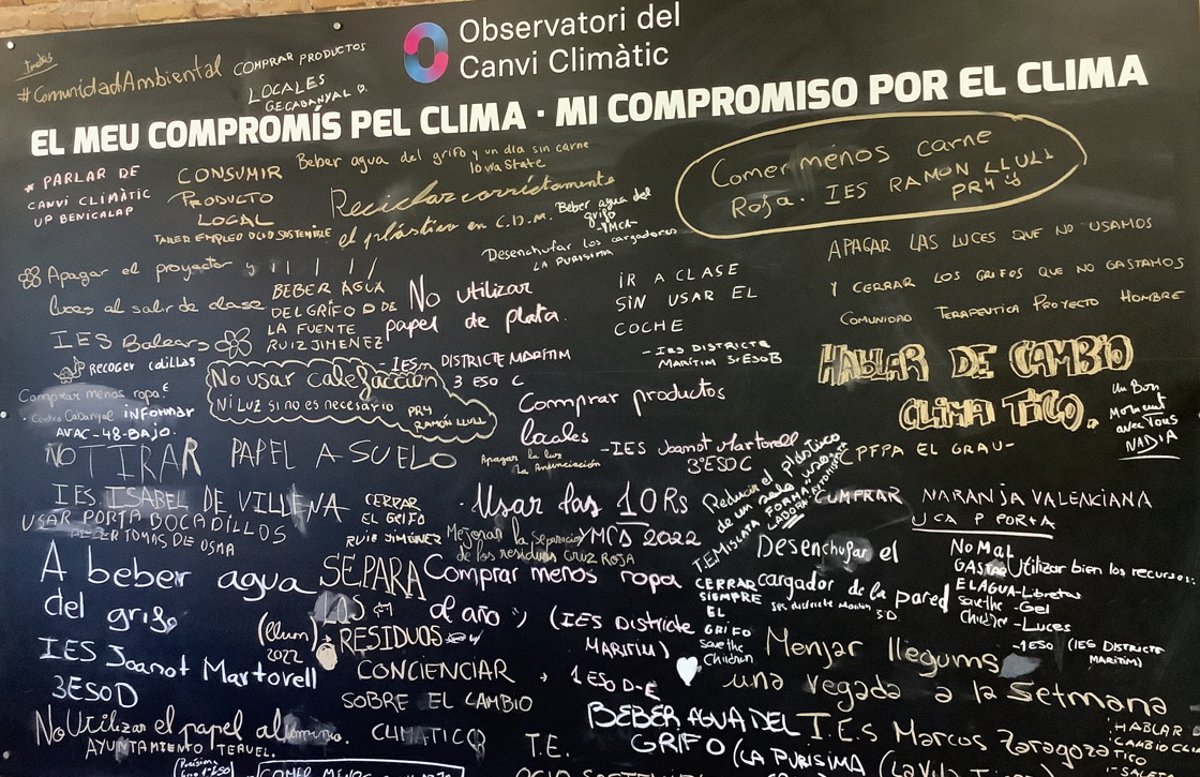 Observatori del
Canvi Climàtic
#ComunidadAmbiental
COMPRAR PRODUCTOS
LOCALES
GECABANYAL
EL MEU COMPROMÍS PEL CLIMA · MI COMPROMISO POR EL CLIMA
* PARLAR DE
CANVI CLIMÀTIC
UP BENICALAP
CONSUMIR
PRODUCTO
LOCAL
TALLER EMPLEO OCIO SOSTENIBLE
Beber agua del grifo y un día sin carne
10 via State
Reciclar correctamente
el plástico en C.D.M.
Beber agua del
grifo
-YMCA-
Desenchufar los cargadores
LA PURISIMA
Comer menos carne
Roja. IES RAMON LLULL
PR4
APAGAR LAS LUCES QUE NO USAMOS
Y CERRAR LOS GRIFOS QUE NO GASTAMOS
COMUNIDAD TERAPEUTICA PROYECTO HOMBRE
Apagar el proyector y
luces al salir de clase
IES Balears
BEBER AGUA
DEL GRIFO O DE
LA FUENTE
RUIZ JIMENEZ
No utilizar
papel de plata.
-IES DISTRICTE MARÍTIM
3 ESO C
IR A CLASE
SIN USAR EL
COCHE
-IES DISTRICTE
MARÍTIM 3ºESOB
HABLAR DE CAMBIO
CLIMATICO.
CPFPA EL GRAU-
Un Bon
Moment
avec Tous
NADIA
Recoger colillas
Comprar menos ropa
Centro Cabanyal informar
AVAC-48-BAJO.
No usar calefacción
Ni Luz si no es necesario PR4
RAMÓN LLULL
Comprar productos
locales -IES Joanot Martorell
3ºESOC
NO TIRAR PAPEL A SUELO
Apagar la luz
La Anunciación
IES ISABEL DE VILLENA
USAR PORTA BOCADILLOS
TOMAS DE OSMA
CERRAR
EL GRIFO
RUIZ JIMÉNEZ
·Usar las 10Rs
YMCA 2022
Mejorar la separación
de los residuos CRUZ ROJA
Reducir el plástico
de un solo uso
T.E MISLATA
COMPRAR NARANJA VALENCIANA
UCA P PORTA
A beber agua
del grifo
IES Joanot Martorell
3ESOD
SEPARA
LOS
RESIDUOS
(Llum)
2022
Comprar menos ropa
al año :) (IES Districte
MARITIM)
1ESO D-E
CERRAR
SIEMPRE
EL
GRIFO
Save the
Children
Desenchufar el
cargador de la pared
3D
NO MAL
GASTAR
EL AGUA
Save the
Children
Utilizar bien los recursos:
-Libretas
-Gel
-Luces
-1ESO (IES DISTRICTE
MARÍTIM)
CONCIENCIAR
SOBRE EL CAMBIO
CLIMATICO
Menjar llegums
una vegada a la Setmana
I.E.S Marcos Zaragoza
No Utilizar el papel aluminio.
AYUNTAMIENTO TERUEL.
T.E.
BEBER AGUA DEL
GRIFO (LA PURÍSIMA
HABLAR D
CAMBIO CLI
TICO